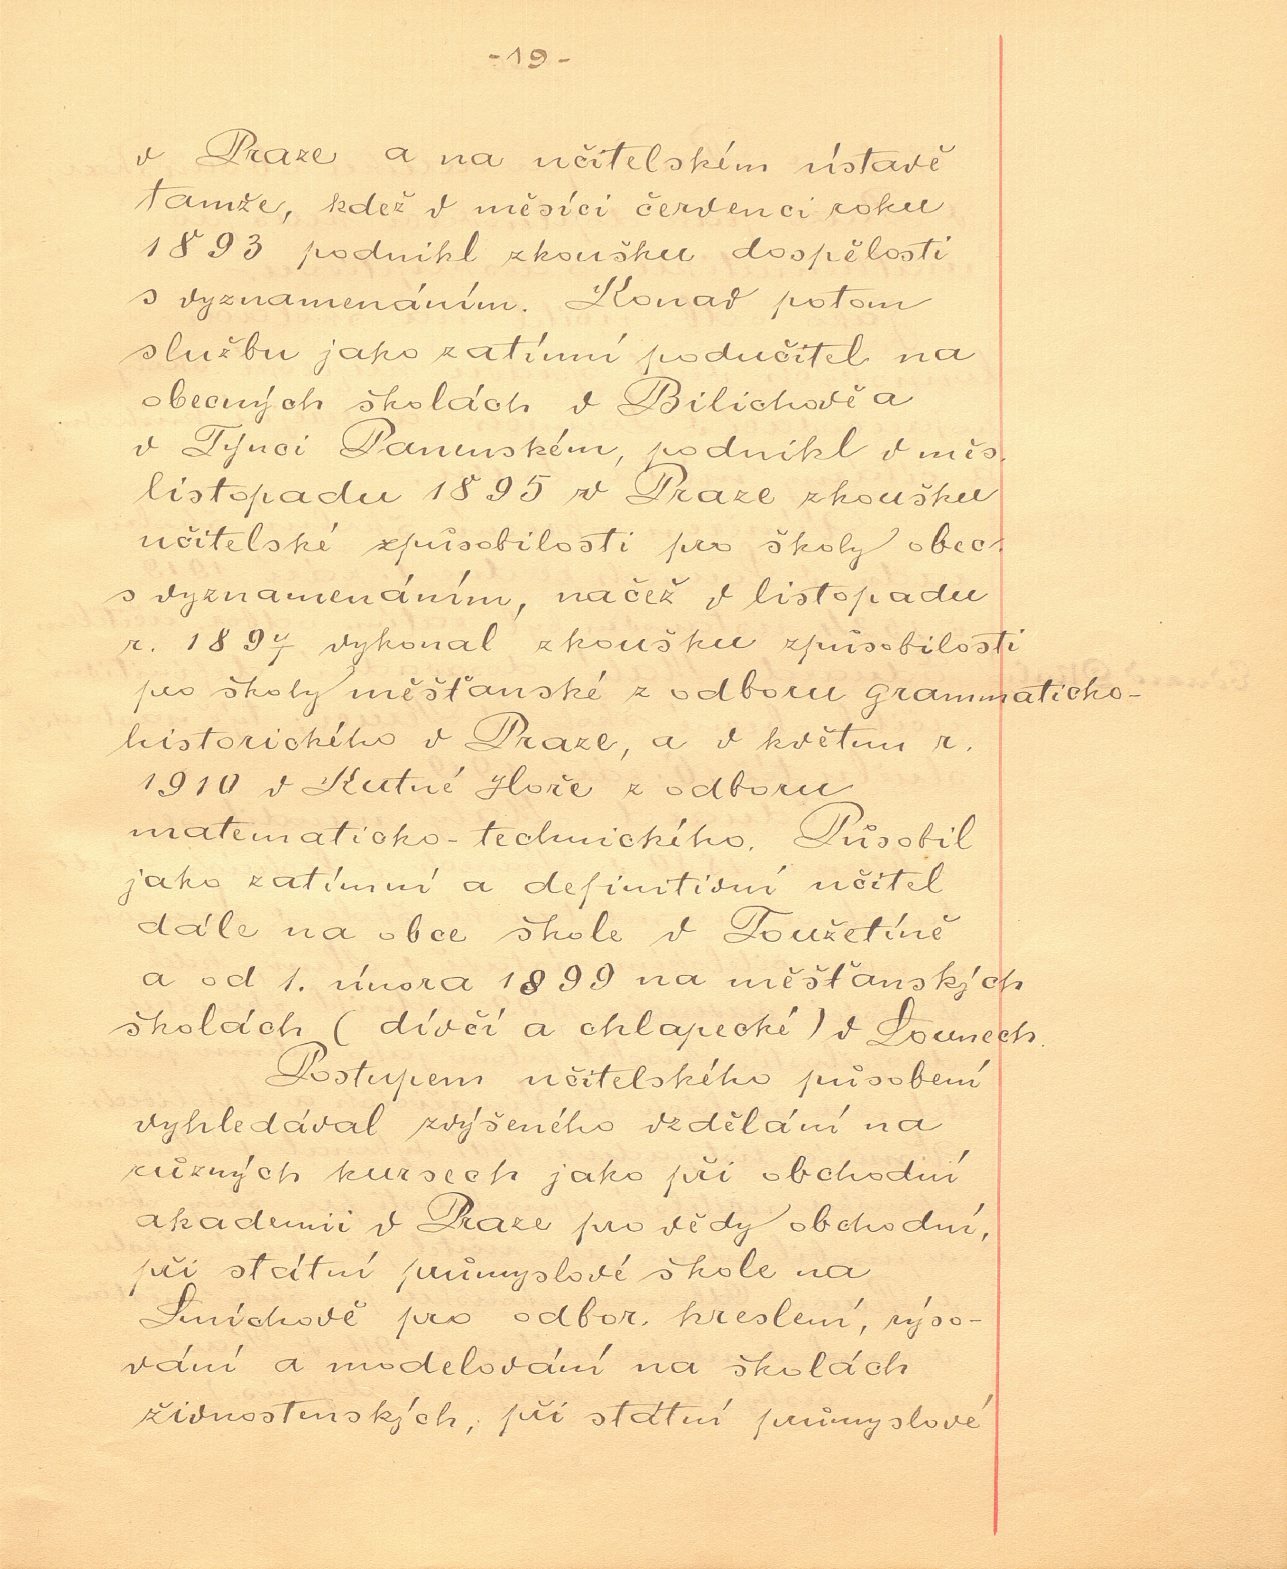 -19-
v Praze a na učitelském ústavě
tamže, kdež v měsíci červenci roku
1893 podnikl zkoušku dospělosti
s vyznamenáním. Konav potom
službu jako zatímní podučitel na
obecných školách v Bilichově a
v Týnci Panenském, podnikl v měs.
listopadu 1895 v Praze zkoušku
učitelské způsobilosti pro školy obec.
s vyznamenáním, načež v listopadu
r. 1897 vykonal zkoušku způsobilosti
pro školy měšťanské z odboru grammaticko-
historického v Praze, a v květnu r.
1910 v Kutné Hoře z odboru
matematicko-technického. Působil
jako zatímní a definitivní učitel
dále na obce škole v Toužetíně
a od 1. února 1899 na měšťanských
školách ( dívčí a chlapecké ) v Lounech.
Postupem učitelského působení
vyhledával zvýšeného vzdělání na
různých kursech jako při obchodní
akademii v Praze pro vědy obchodní,
při státní průmyslové škole na
Smíchově pro odbor. kreslení, rýso-
vání a modelování na školách
živnostenských, při státní průmyslové